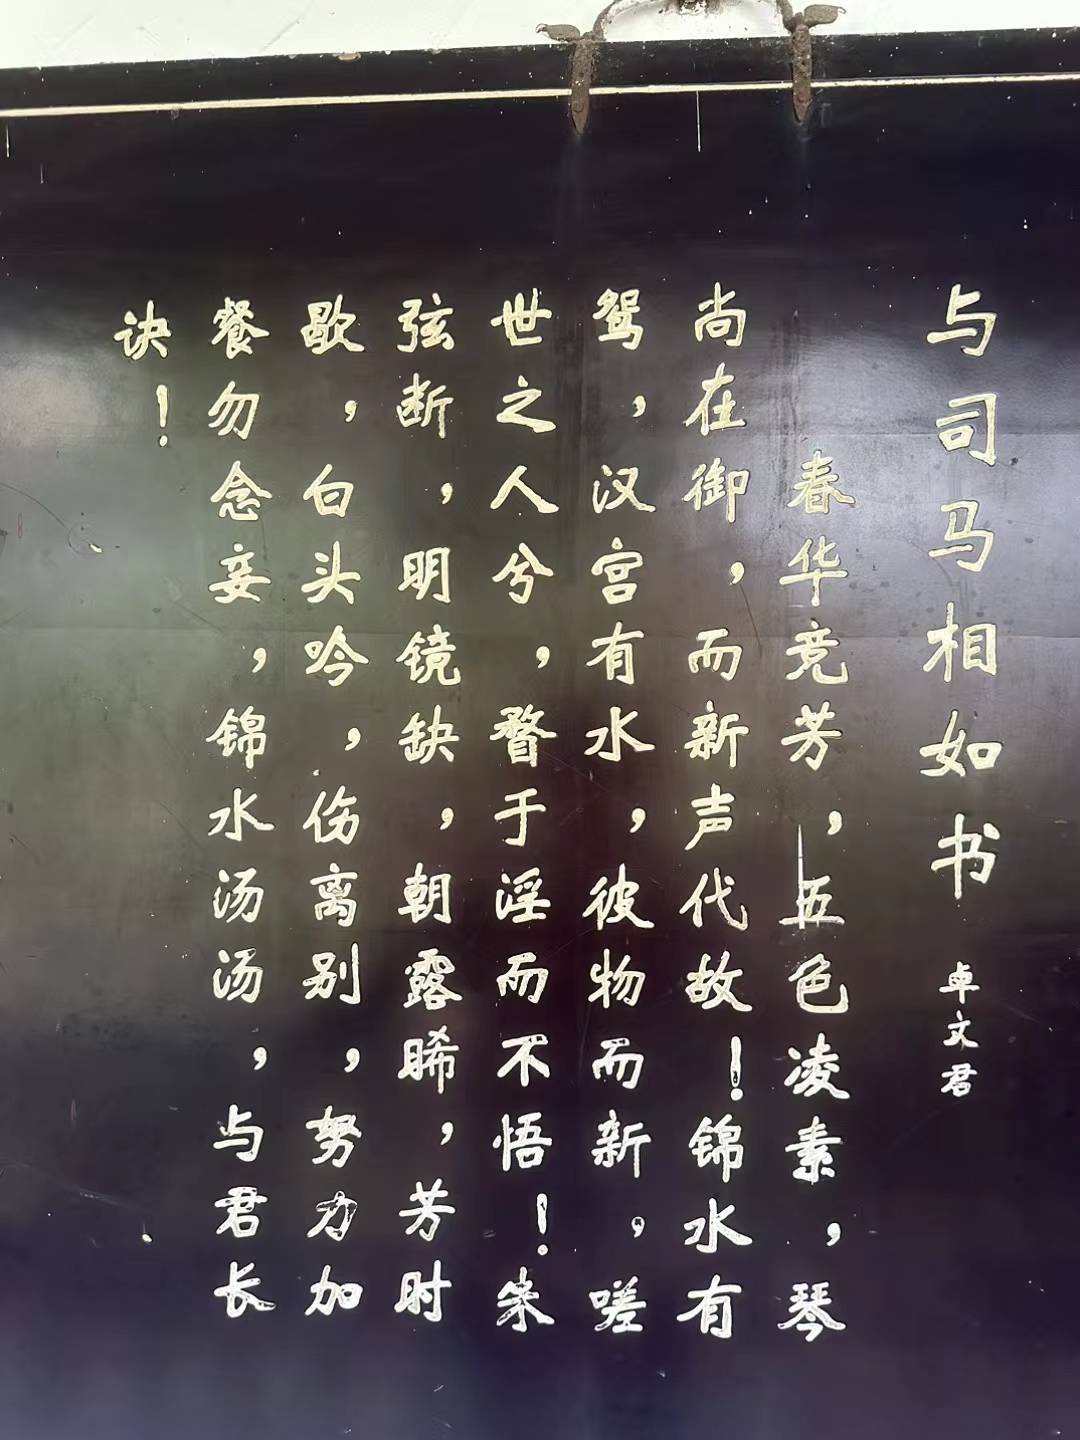 与司马相如书 卓文君
春华竞芳，五色凌素，琴
尚在御，而新声代故！锦水有
鸳，汉宫有水，彼物而新，嗟
世之人兮，瞀于淫而不悟！朱
弦断，明镜缺，朝露晞，芳时
歇，白头吟，伤离别，努力加
餐勿念妾，锦水汤汤，与君长
诀！